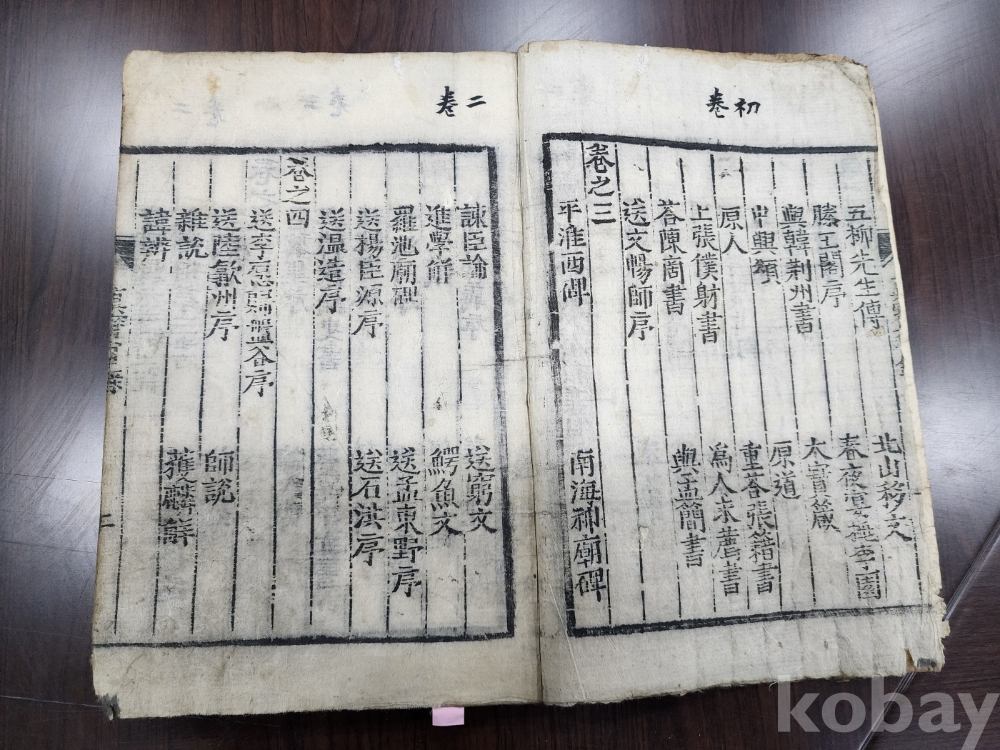 初卷
五柳先生傳 北山移文
滕王閣序 春夜宴桃李園
與韓荊州書 大寶箴
中興頌 原道
原人 重荅張籍書
上張僕射書 爲人求薦書
荅陳商書 與孟簡書
送文暢師序
卷之三
平淮西碑 南海神廟碑
二卷
諫臣論 送窮文
進學解 鰐魚文
羅池廟碑 送孟東野序
送楊巨源序 送石洪序
送温造序
卷之四
送李愿歸盤谷序
送陸歙州序 師說
雜說 獲麟解
諱辨
kobay